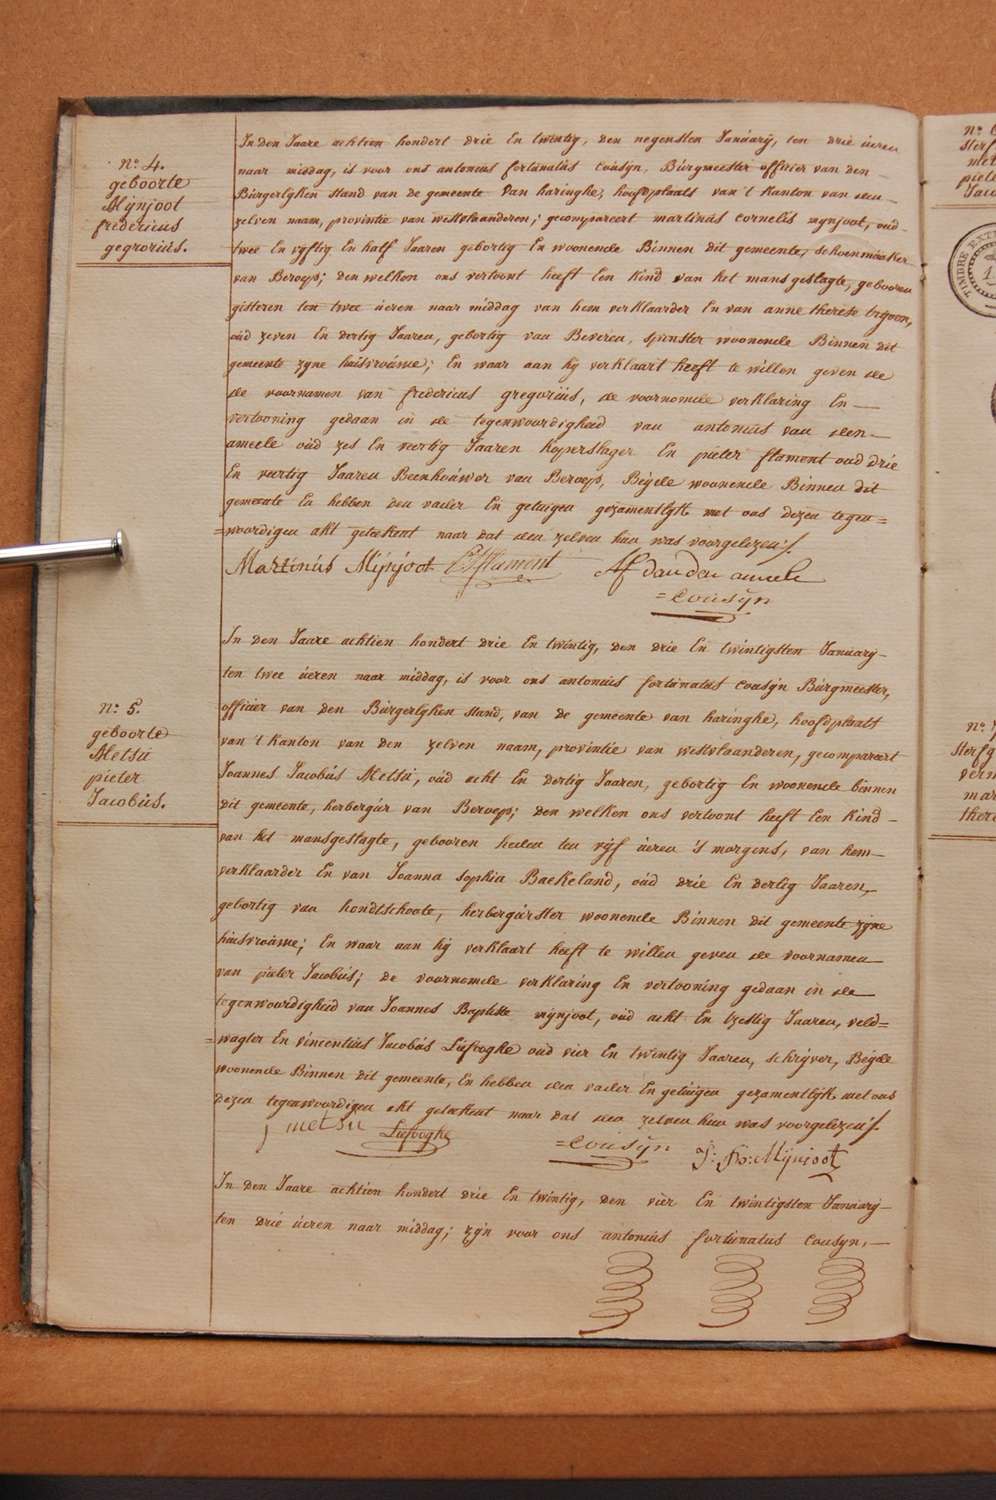 N.º 4.
geboorte
Mijnjoot
fredericus
gegrorius.
In den Jaare achtien hondert drie En twintig, den negensten Januarij, ten drie üeren
naar middag, is voor ons antonius fortunatüs Coüsyn, Bürgmeester officier van den
Bürgerlyken stand van de gemeente Van haringhe, hoofdplaats van 't Kanton van den
zelven naam, provintie van westvlaanderen; gecompareert martinüs cornelis mynjoot, oud
twee En vyftig En half Jaaren gebortig En woonende Binnen dit gemeente, schoenmaaker
van Beroep; den welken ons vertoont heeft Een kind van het mansgeslagte, gebooren
gisteren ten twee üeren naar middag van hem verklaarder En van anne therese
oüd zeven En dertig Jaaren, gebortig van Beveren, spinster woonende Binnen dit
gemeente zyne huisvroüwe; En waar aan hy verklaart heeft te willen geven de
de voornamen van fredericus gregoriüs, de voornomde verklaring En
vertooning gedaan in de tegenwoordigheid van antoniüs van den
ameele oüd zes En veertig Jaaren koperslager En pieter flament oud drie
En veertig Jaaren Beenhoüwer van Beroep, Beyde woonende Binnen dit
gemeente En hebben den vader En getuigen gezamentlyk met ons dezen tegen=
=woordigen akt geteekent naar dat den zelven hun was voorgelezen /.
Martinüs Mijnjoot P flament AF van den ameele
=Coüsÿn
N.º 5.
geboorte
Metsü
pieter
Jacobüs.
In den Jaare achtien hondert drie En twintig, den drie En twintigsten Januarij
ten twee üeren naar middag, is voor ons antoniüs fortunatüs Coüsÿn Bürgmeester,
officier van den Bürgerlyken stand, van de gemeente van haringhe, hoofdplaats
van 't Kanton van den zelven naam, provintie van westvlaanderen, gecompareert
Joannes Jacobüs Metsü, oüd acht En dertig Jaaren, gebortig En woonende binnen
dit gemeente, herbergier van Beroep; den welken ons vertoont heeft Een kind
van het mansgeslagte, gebooren heden ten vÿf üeren 's morgens, van hem
verklaarder En van Joanna Sophia Baekeland, oüd drie En dertig Jaaren,
gebortig van hondtschoote, herbergierster woonende Binnen dit gemeente zyne
huisvroüwe; En waar aan hy verklaart heeft te willen geven de voornamen
van pieter Jacobüs; de voornomde verklaring En vertooning gedaan in de
tegenwoordigheid van Joannes Baptiste mynjoot, oüd acht En tzestig Jaaren, veld=
=wagter En vincentiüs Jacobüs Liefooghe oud vier En twintig Jaaren, schryver, Beyde
woonende Binnen dit gemeente, En hebben den vader En getuigen gezamentlyk met ons
dezen tegenwoordigen akt geteekent naar dat den zelven hun was voorgelezen /.
J metsu Liefooghe =Coüsÿn J: B: Mÿnjoot
In den Jaare achtien hondert drie En twintig, den vier En twintigsten Januarij
ten drie üeren naar middag; zyn voor ons antoniüs fortunatus Cousyn,
N.º 6
Sterf
met
piete
Jaco
TIMBRE EXT
N.º 7
Sterfg
verm
mar
there